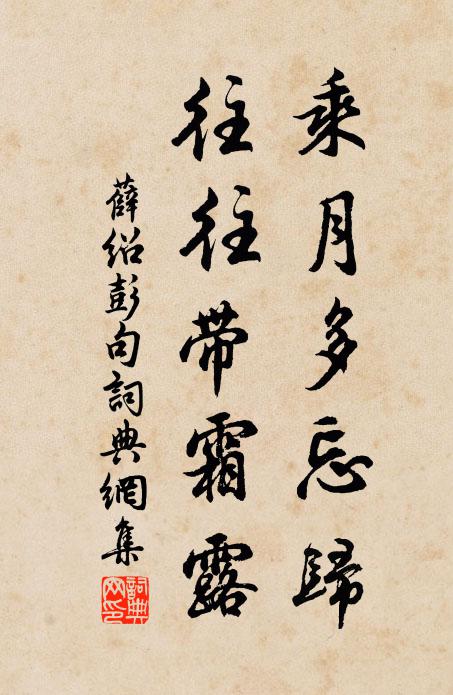 乘月多忘歸
往往带霜露
薛绍彭句詞典網集
詞典